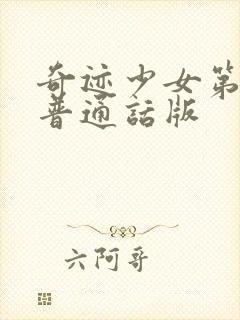 奇迹少女第
普通話版
六阿哥